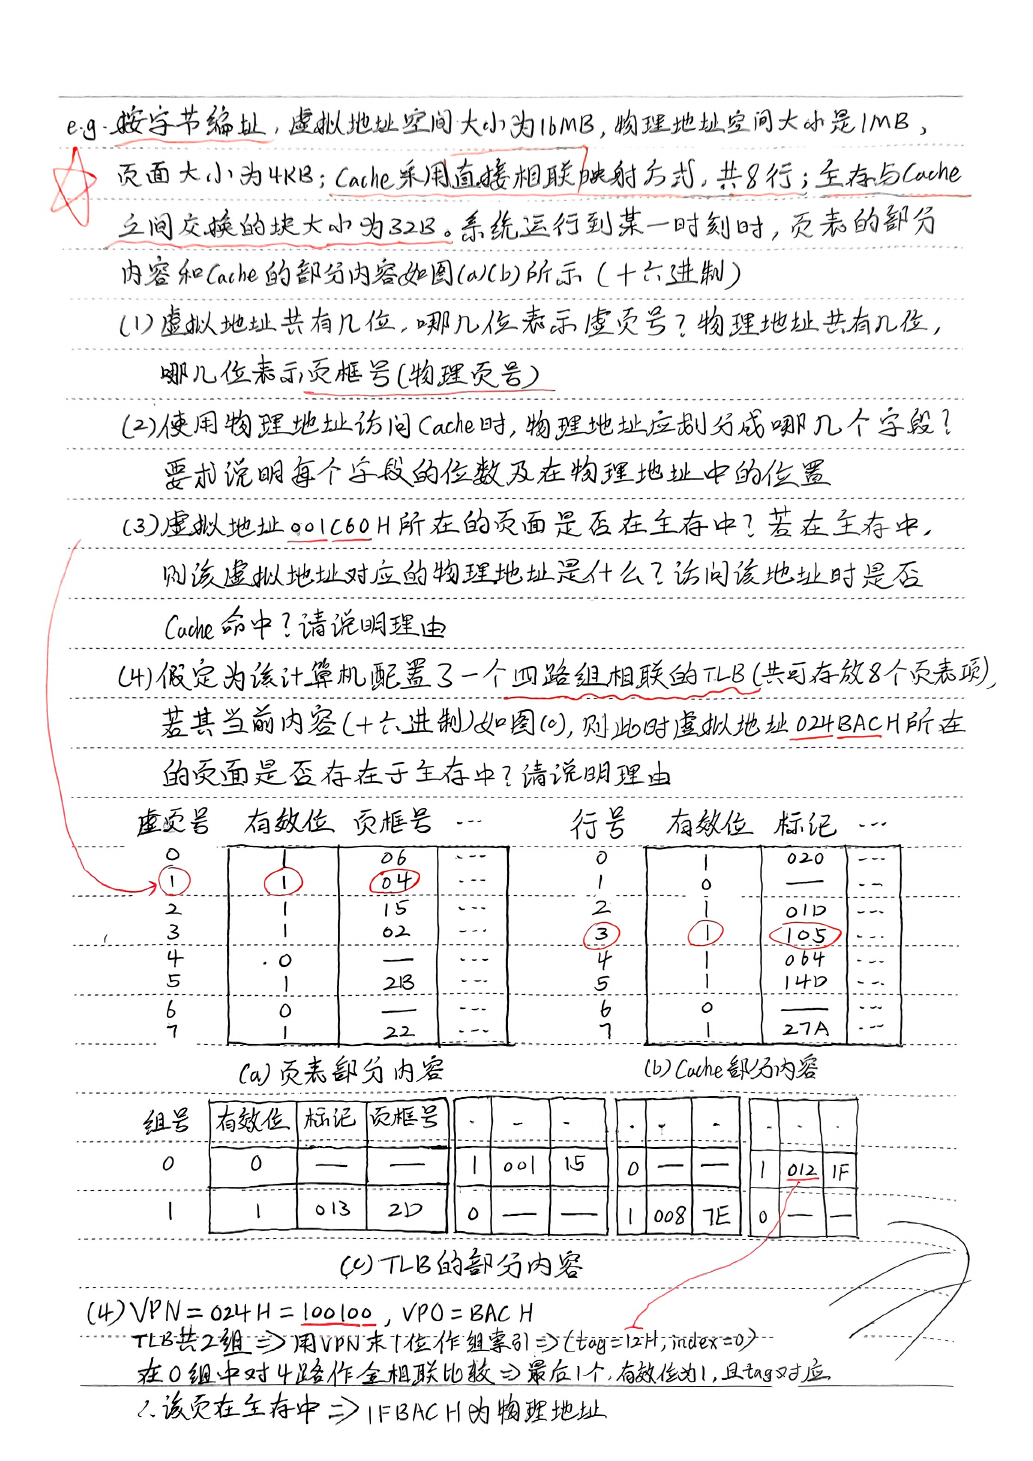 e.g. 按字节编址，虚拟地址空间大小为16MB，物理地址空间大小是1MB，
页面大小为4KB；Cache采用直接相联映射方式，共8行；主存与Cache
之间交换的块大小为32B。系统运行到某一时刻时，页表的部分
内容和Cache的部分内容如图(a)(b)所示（十六进制）
(1)虚拟地址共有几位，哪几位表示虚页号？物理地址共有几位，
哪几位表示页框号(物理页号)
(2)使用物理地址访问Cache时，物理地址应划分成哪几个字段？
要求说明每个字段的位数及在物理地址中的位置
(3)虚拟地址001C60H所在的页面是否在主存中？若在主存中，
则该虚拟地址对应的物理地址是什么？访问该地址时是否
Cache命中？请说明理由
(4)假定为该计算机配置了一个四路组相联的TLB(共可存放8个页表项)，
若其当前内容(十六进制)如图(c)，则此时虚拟地址024BACH所在
的页面是否存在于主存中？请说明理由
虚页号 有效位 页框号 ... 行号 有效位 标记 ...
0 1 06 ... 0 1 020 ...
1 1 04 ... 1 0 — ...
2 1 15 ... 2 1 01D ...
3 1 02 ... 3 1 105 ...
4 0 — ... 4 1 064 ...
5 1 2B ... 5 1 14D ...
6 0 — ... 6 0 — ...
7 1 22 ... 7 1 27A ...
(a)页表部分内容 (b)Cache部分内容
组号 有效位 标记 页框号 . - - . - - . . .
0 0 — — 1 001 15 0 — — 1 012 1F
1 1 013 2D 0 — — 1 008 7E 0 — —
(c)TLB的部分内容
(4)VPN=024H=100100，VPO=BACH
TLB共2组⇒用VPN末1位作组索引⇒(tag=12H,index=0)
在0组中对4路作全相联比较⇒最后1个，有效位为1，且tag对应
∴该页在主存中⇒1FBACH为物理地址